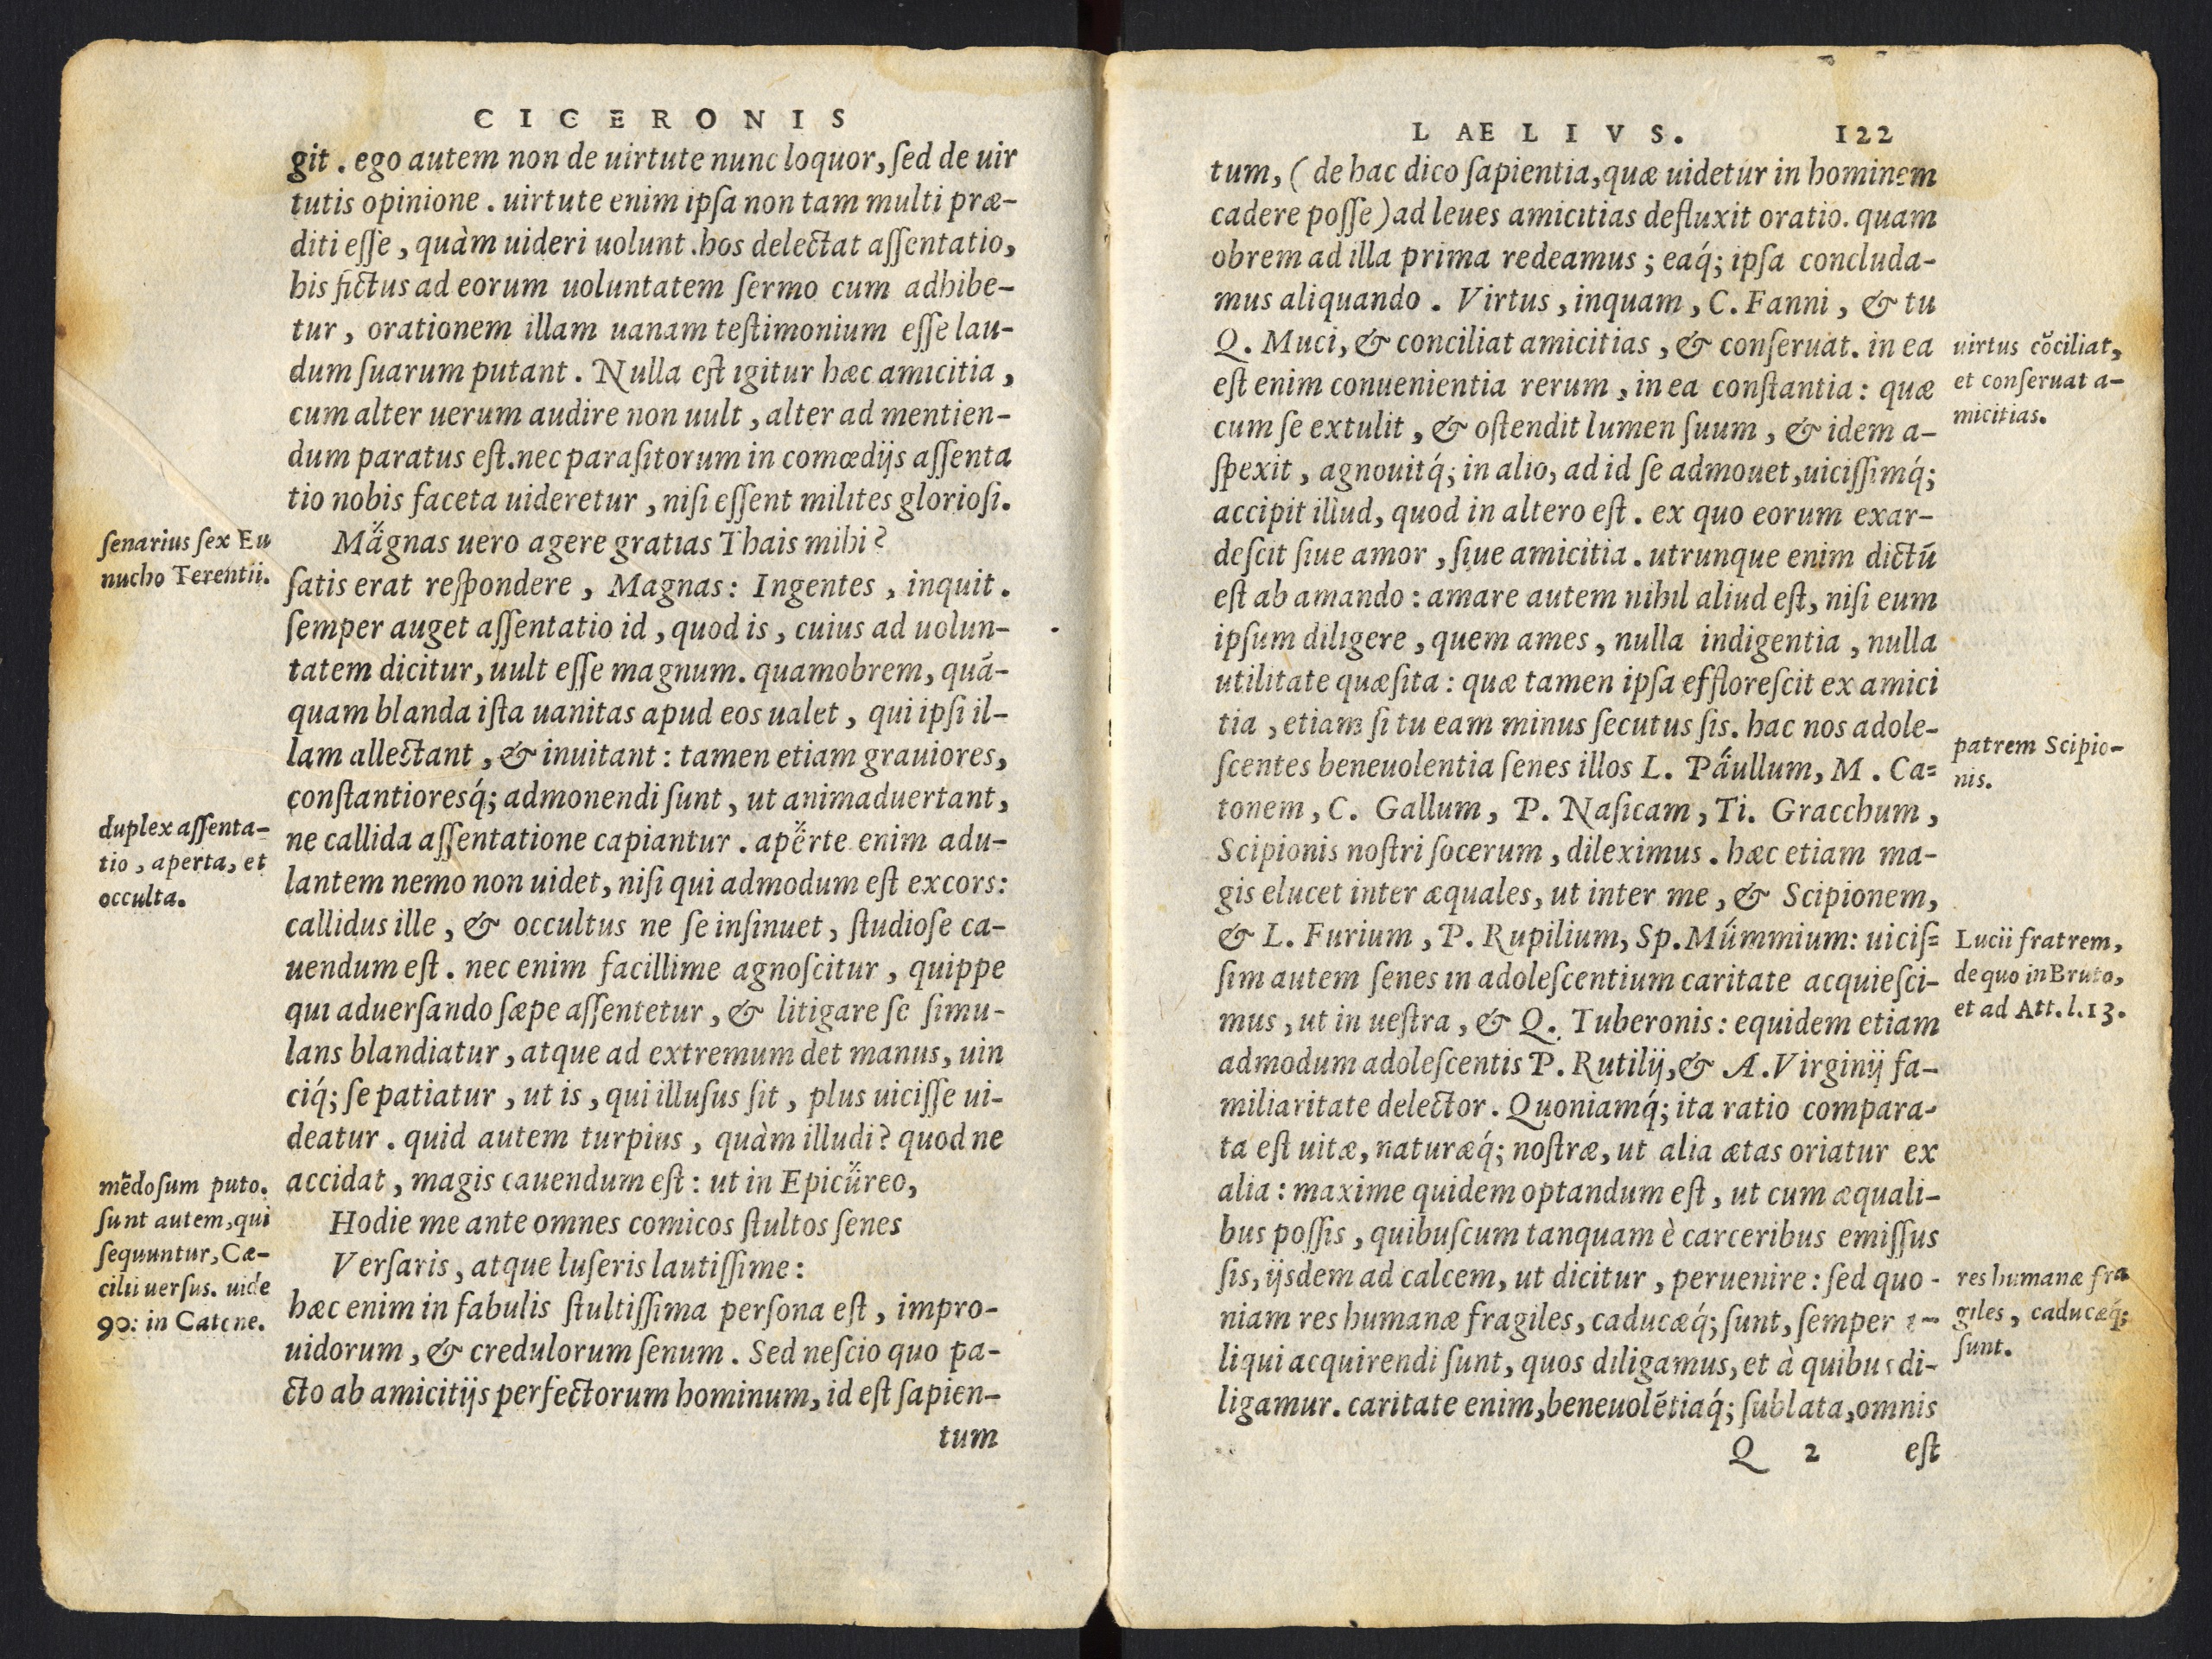 CICERONIS
git. ego autem non de uirtute nunc loquor, ſed de uir
tutis opinione. uirtute enim ipſa non tam multi præ-
diti eſſe, quàm uideri uolunt. hos delectat aſſentatio,
his fictus ad eorum uoluntatem ſermo cum adhibe-
tur, orationem illam uanam teſtimonium eſſe lau-
dum ſuarum putant. Nulla eſt igitur hæc amicitia,
cum alter uerum audire non uult, alter ad mentien-
dum paratus eſt. nec paraſitorum in comœdijs aſſenta
tio nobis faceta uideretur, niſi eſſent milites glorioſi.
Magnas uero agere gratias Thais mihi?
ſatis erat reſpondere, Magnas: Ingentes, inquit.
ſemper auget aſſentatio id, quod is, cuius ad uolun-
tatem dicitur, uult eſſe magnum. quamobrem, quā-
quam blanda iſta uanitas apud eos ualet, qui ipſi il-
lam allectant, & inuitant: tamen etiam grauiores,
conſtantioresq́; admonendi ſunt, ut animaduertant,
ne callida aſſentatione capiantur. aperte enim adu-
lantem nemo non uidet, niſi qui admodum eſt excors:
callidus ille, & occultus ne ſe inſinuet, ſtudioſe ca-
uendum eſt. nec enim facillime agnoſcitur, quippe
qui aduerſando ſæpe aſſentetur, & litigare ſe ſimu-
lans blandiatur, atque ad extremum det manus, uin
ciq́; ſe patiatur, ut is, qui illuſus ſit, plus uiciſſe ui-
deatur. quid autem turpius, quàm illudi? quod ne
accidat, magis cauendum eſt: ut in Epicureo,
Hodie me ante omnes comicos ſtultos ſenes
Verſaris, atque luſeris lautiſſime:
hæc enim in fabulis ſtultiſſima perſona eſt, impro-
uidorum, & credulorum ſenum. Sed neſcio quo pa-
cto ab amicitijs perfectorum hominum, id eſt ſapien-
tum
ſenarius ſex Eu
nucho Terentii.
duplex aſſenta-
tio, aperta, et
occulta.
mēdoſum puto.
ſunt autem, qui
ſequuntur, Cæ-
cilii uerſus. uide
90: in Catone.
LAELIVS. 122
tum, (de hac dico ſapientia, quæ uidetur in hominem
cadere poſſe) ad leues amicitias defluxit oratio. quam
obrem ad illa prima redeamus; eaq́; ipſa concluda-
mus aliquando. Virtus, inquam, C. Fanni, & tu
Q. Muci, & conciliat amicitias, & conſeruat. in ea
eſt enim conuenientia rerum, in ea conſtantia: quæ
cum ſe extulit, & oſtendit lumen ſuum, & idem a-
ſpexit, agnouitq́; in alio, ad id ſe admouet, uiciſſimq́;
accipit illud, quod in altero eſt. ex quo eorum exar-
deſcit ſiue amor, ſiue amicitia. utrunque enim dictū
eſt ab amando: amare autem nihil aliud eſt, niſi eum
ipſum diligere, quem ames, nulla indigentia, nulla
utilitate quæſita: quæ tamen ipſa effloreſcit ex amici
tia, etiam ſi tu eam minus ſecutus ſis. hac nos adole-
ſcentes beneuolentia ſenes illos L. Paullum, M. Ca=
tonem, C. Gallum, P. Naſicam, Ti. Gracchum,
Scipionis noſtri ſocerum, dileximus. hæc etiam ma-
gis elucet inter æquales, ut inter me, & Scipionem,
& L. Furium, P. Rupilium, Sp. Mummium: uiciſ=
ſim autem ſenes in adoleſcentium caritate acquieſci-
mus, ut in ueſtra, & Q. Tuberonis: equidem etiam
admodum adoleſcentis P. Rutilij, & A. Virginij fa-
miliaritate delector. Quoniamq́; ita ratio compara-
ta eſt uitæ, naturæq́; noſtræ, ut alia ætas oriatur ex
alia: maxime quidem optandum eſt, ut cum æquali-
bus poſſis, quibuſcum tanquam è carceribus emiſſus
ſis, ijsdem ad calcem, ut dicitur, peruenire: ſed quo-
niam res humanæ fragiles, caducæq́; ſunt, ſemper a-
liqui acquirendi ſunt, quos diligamus, et à quibus di-
ligamur. caritate enim, beneuolētiaq́; ſublata, omnis
Q 2 eſt
uirtus cōciliat,
et conſeruat a-
micitias.
patrem Scipio-
nis.
Lucii fratrem,
de quo in Bruto,
et ad Att. l. 13.
res humanæ fra
giles, caducæq́;
ſunt.